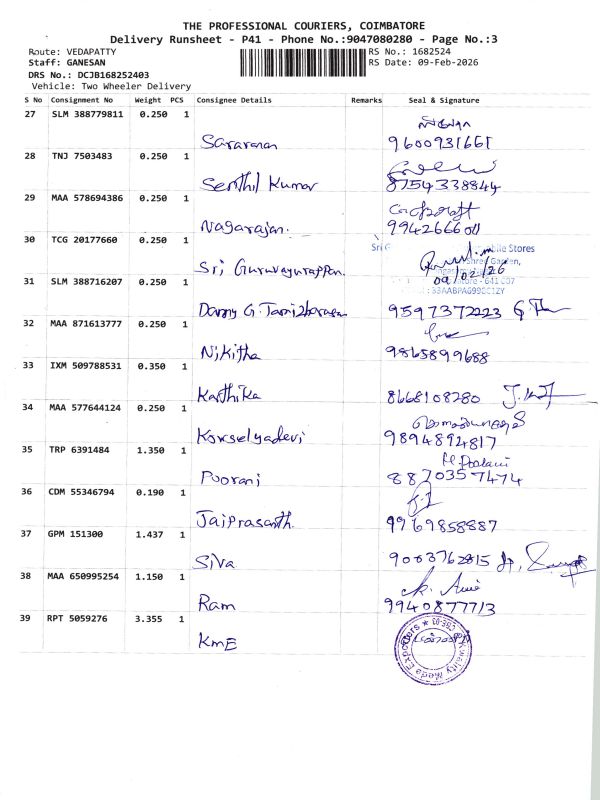 THE PROFESSIONAL COURIERS, COIMBATORE
Delivery Runsheet - P41 - Phone No.:9047080280 - Page No.:3
Route: VEDAPATTY
RS No.: 1682524
Staff: GANESAN
RS Date: 09-Feb-2026
DRS No.: DCJB168252403
Vehicle: Two Wheeler Delivery
S No Consignment No Weight PCS Consignee Details Remarks Seal & Signature
27 SLM 388779811 0.250 1
Saravanan 9600931661
28 TNJ 7503483 0.250 1
Senthil Kumar 8754338844
29 MAA 578694386 0.250 1
Nagarajan. 9942666011
30 TCG 20177660 0.250 1
Sri Guruvayurappan. 09/02/26
Mobile Stores
Garden,
33AABPAG99
31 SLM 388716207 0.250 1
Danny G. 9597372223
32 MAA 871613777 0.250 1
Nikitha 9865899688
33 IXM 509788531 0.350 1
Karthika 8668108280
34 MAA 577644124 0.250 1
9894894817
35 TRP 6391484 1.350 1
Poorani 8870357474
36 CDM 55346794 0.190 1
Jaiprasanth. 9969858887
37 GPM 151300 1.437 1
Siva 9003762815
38 MAA 650995254 1.150 1
Ram 9940877713
39 RPT 5059276 3.355 1
KmE
Quality Made Exporters